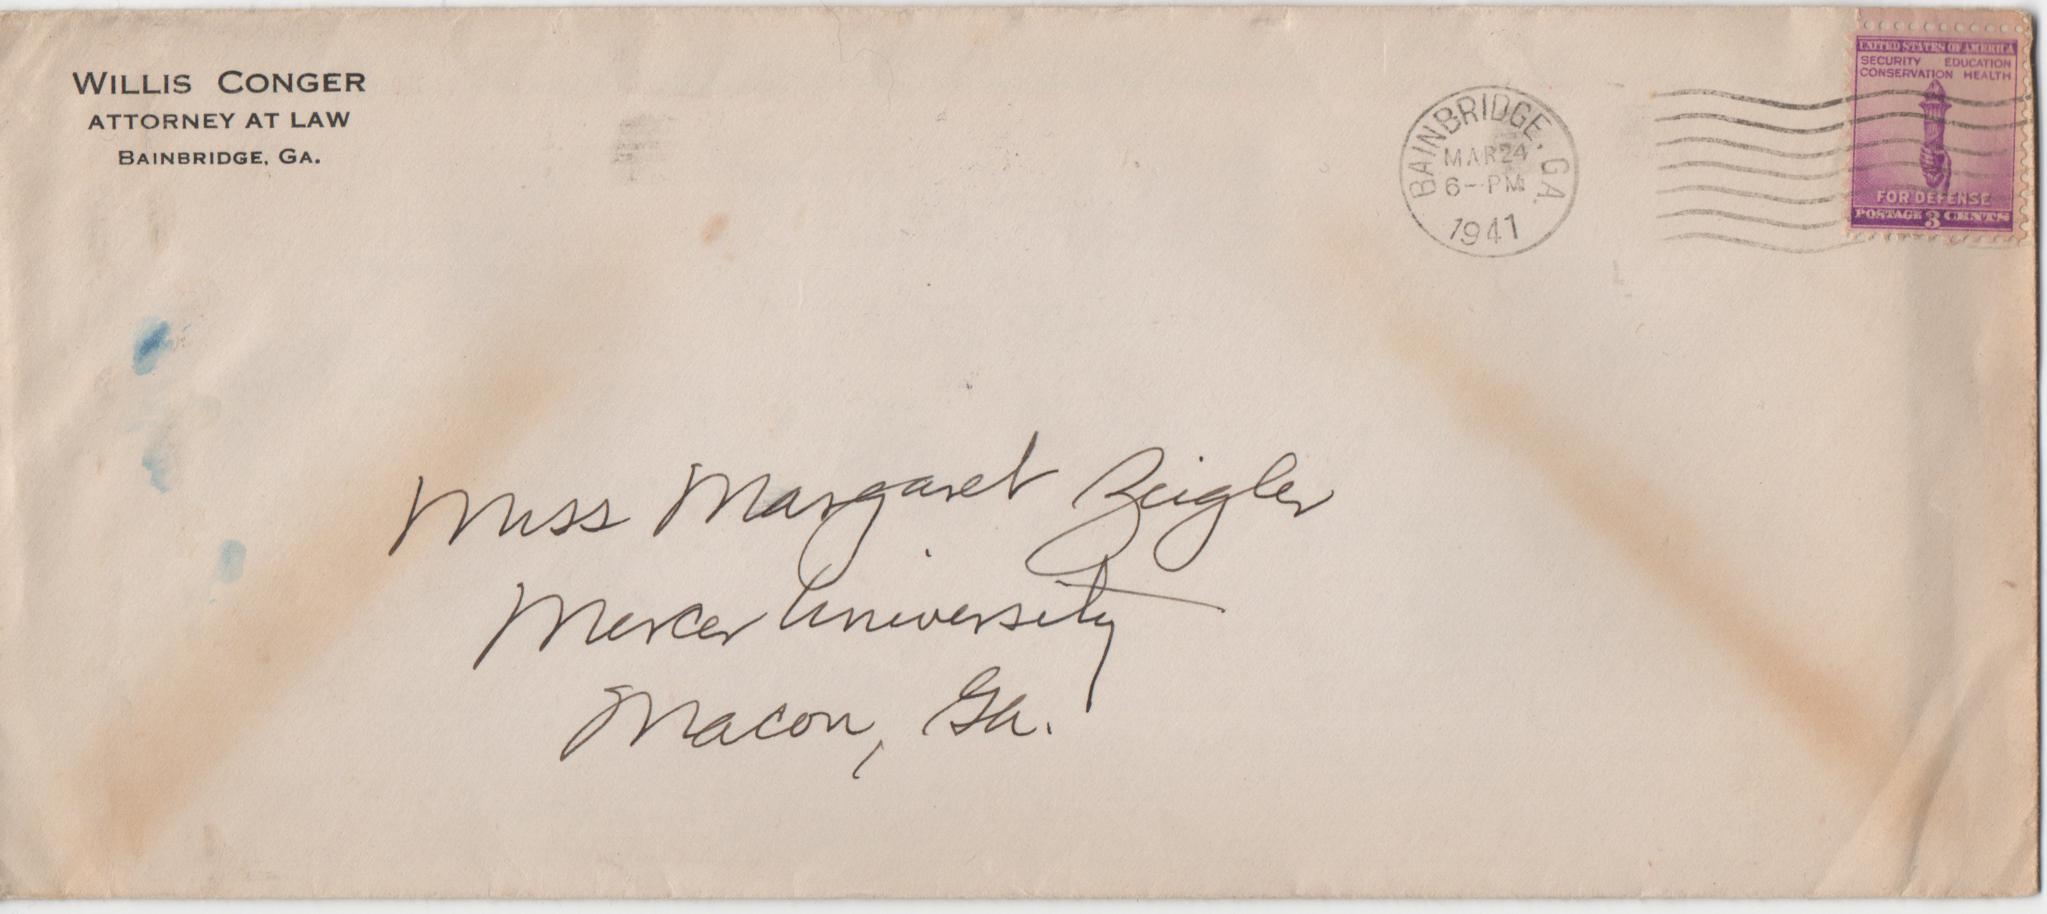 WILLIS CONGER
ATTORNEY AT LAW
BAINBRIDGE, GA.
BAINBRIDGE, GA.
MAR 24
6-PM
1941
UNITED STATES OF AMERICA
SECURITY EDUCATION
CONSERVATION HEALTH
FOR DEFENSE
POSTAGE 3 CENTS
Miss Margaret Zeigler
Mercer University
Macon, Ga.